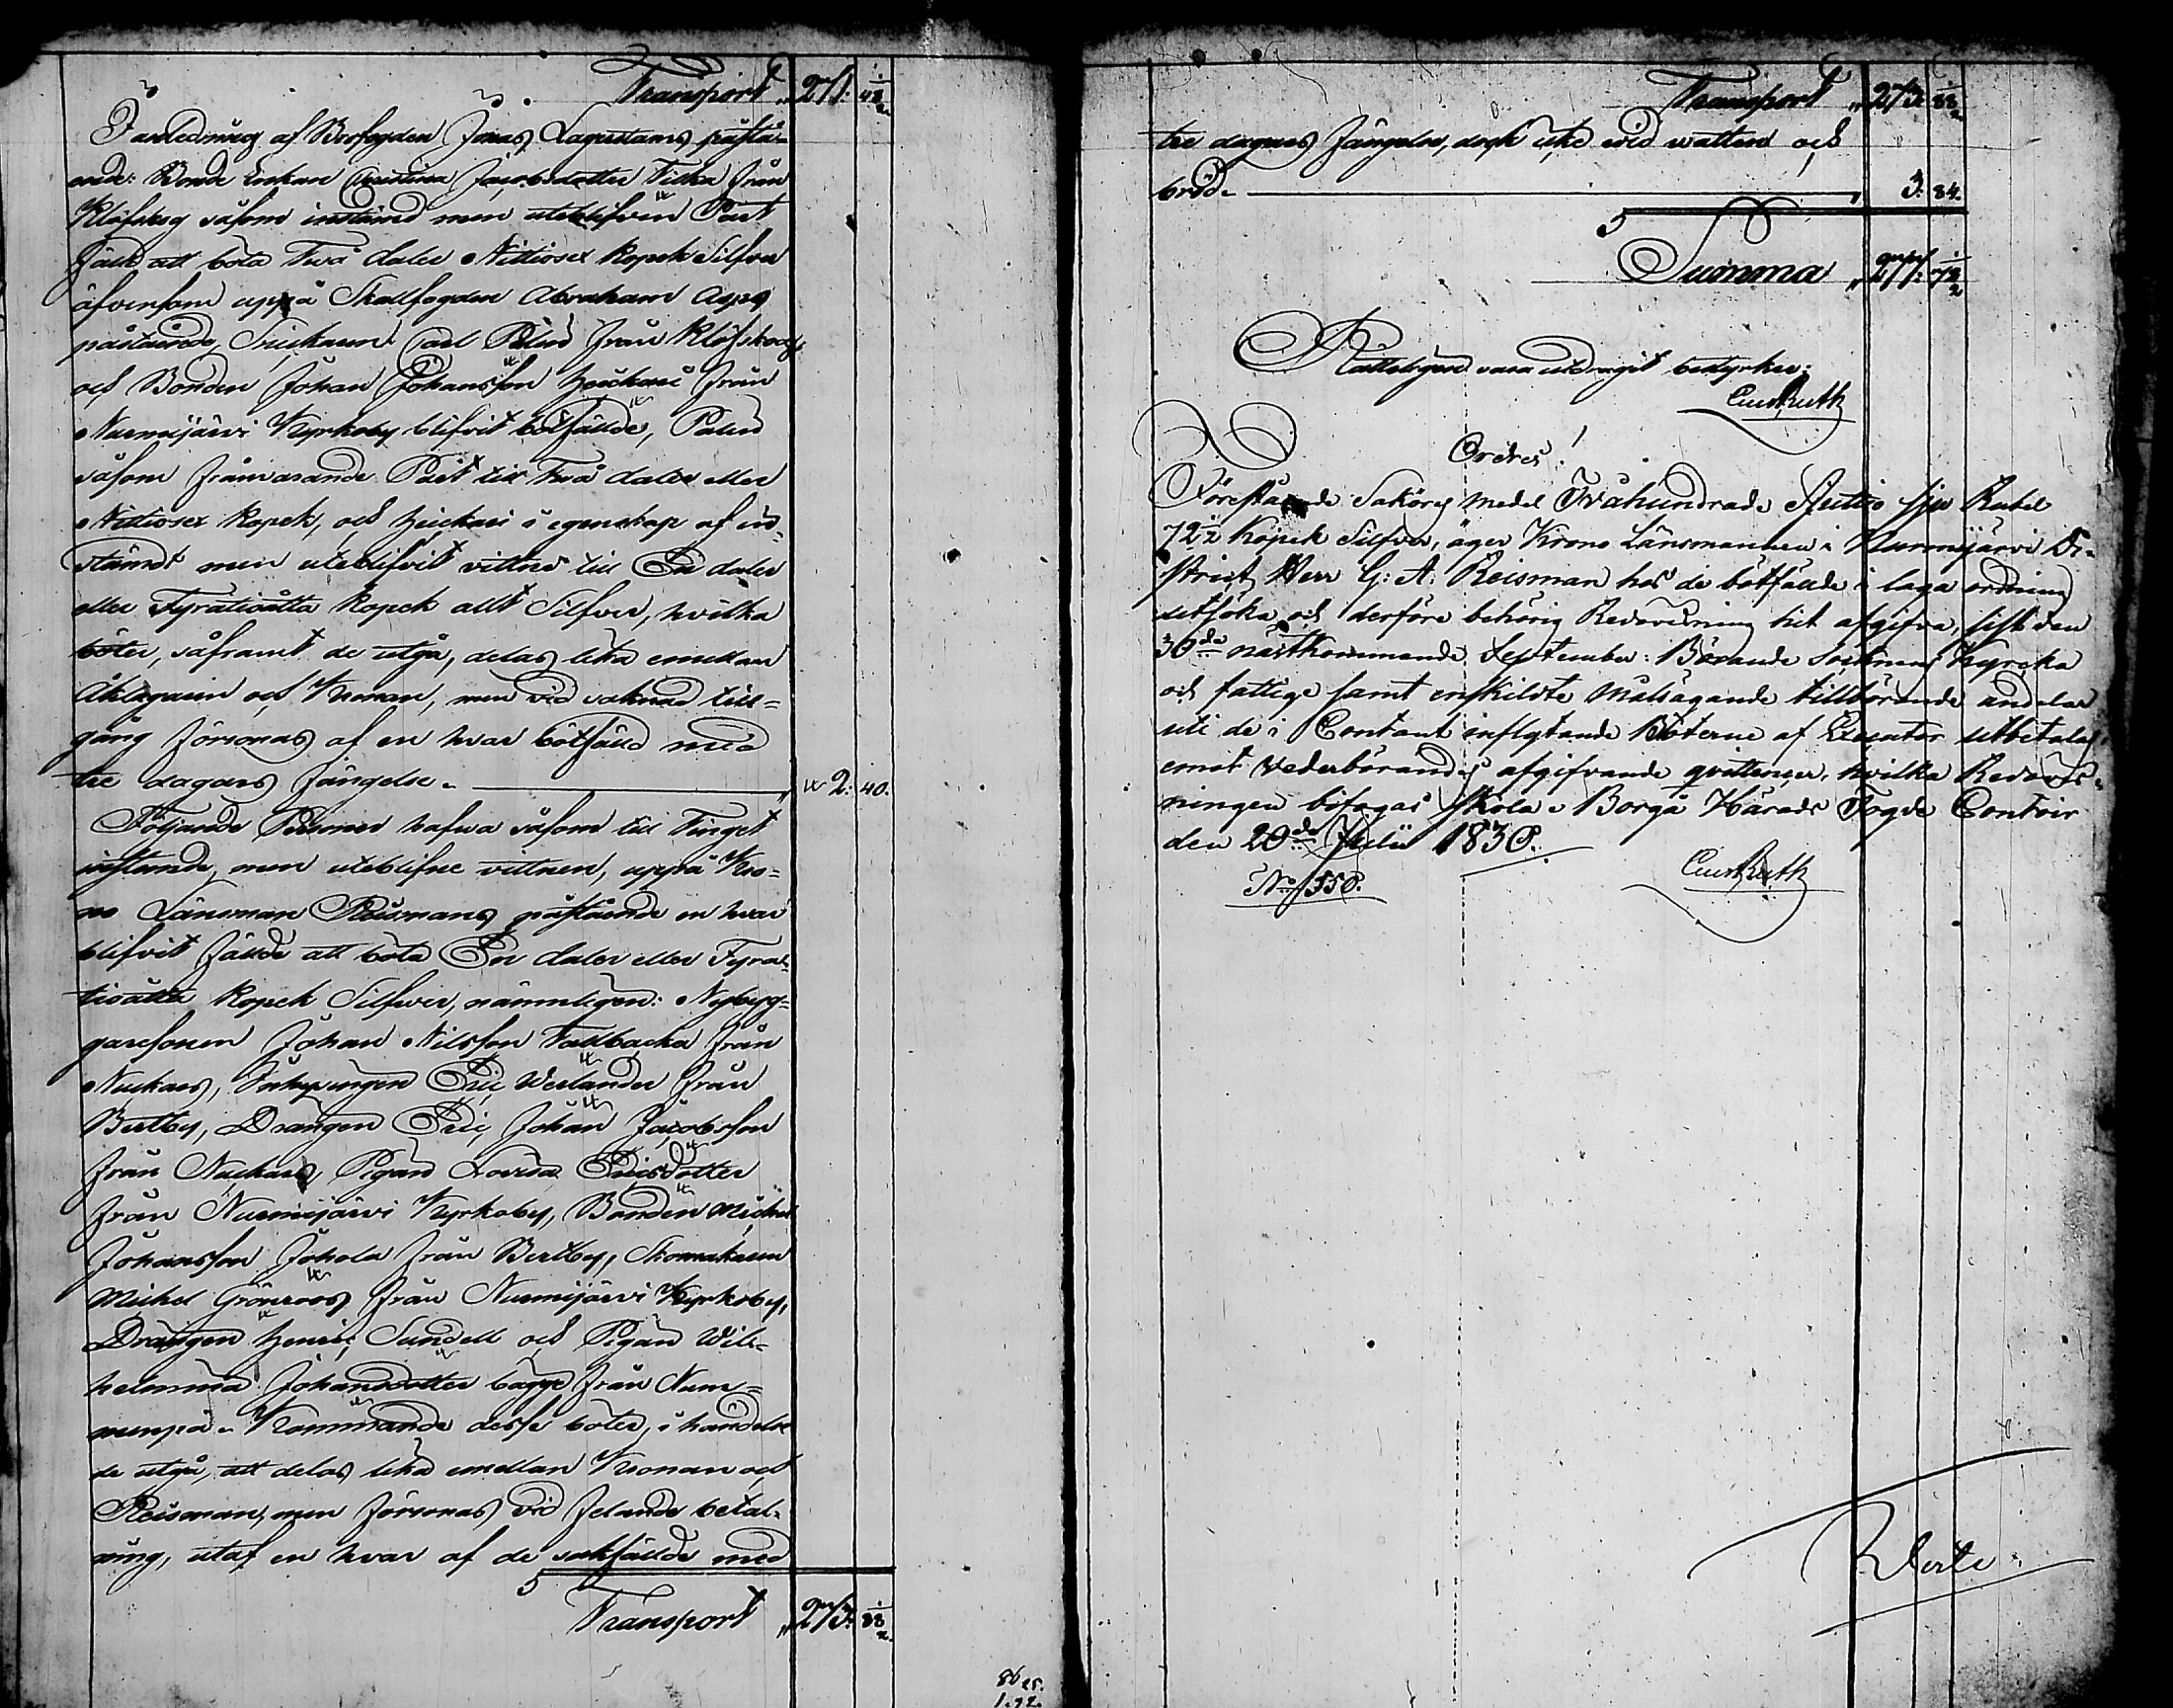 Transport „ 271: 48 1/2
I anledning af Brofogden Jonas Lagerstams påstå-
ende: Bonde Enkan Christina Jacobsdotter Tilka från
Klöfskog såsom instämd men utebliven Part
fäld att böta Två daler Nittiosex kopek Silfver
äfvensom uppå Skallfogden Abraham Asps
påstående, Snickaren Carl Palin från Klöfskog
och Bonden Johan Johansson Heickari från
Nurmijärvi Kyrkoby blifvit bötfällde, Palin
såsom frånvarande Part till Två daler eller
Nittiosex kopek, och Heickari i egenskap af in-
stämdt men uteblifvit vittne till En daler
eller Fyratioåtta kopek allt Silfver, hvilka
böter, såframt de utgå, delas lika emellan
Åklagaren och Kronan, men vid saknad till-
gång försonas af en hvar bötfälld med
tre dagars fängelse. „ 2: 40.
Följande Personer hafwa såsom till Tinget
instämde, men uteblifne vittnen, uppå Kro-
no Länsman Reismans påstående en hvar
blifvit fällde att böta En daler eller Fyra-
tioåtta kopek Silfwer, nämnligen: Nybyg-
garesonen Johan Nilsson Fallbacka från
Nackars, Inhysingen Eric Werlander från
Bertby, Drängen Eric Johan Jacobsson
från Nackars, Pigan Lovisa Ericsdotter
från Nurmijärvi Kyrkoby, Bonden Michel
Johansson Johola från Bertby, Skomakaren
Michel Grönroos från Nurmijärvi Kyrkoby,
Drängen Henric Sundell och Pigan Wil-
helmina Johansdotter bägge från Num-
menpä. Kommande desse böter, i händelse
de utgå, att delas lika emellan Kronan och
Reisman, men försonas vid felande betal-
ning, utaf en hvar af de sakfällde med
Transport „ 273: 88 1/2
Transport „ 273: 88 1/2
tre dagars fängelse, dock icke vid watten och
bröd. „ 3: 84.
Summa „ 277: 72 1/2
Rätteligen vara utdragit bestyrker:
Ordres!
Förestående Saköres medel Tvåhundrade Sjuttio sju Rubel
72 1/2 Kopek Silfver, äger Krono Länsmannen i Nurmijärvi Di-
strict Herr G: A: Reisman hos de bötfällde i laga ordning
utsöka och derföre behörig Redovisning hit afgifva, sist den
30de nästkommande September: Börande Socknens Kyrcka
och fattige samt enskildte Målsägande tillhörande andelar
uti de i Contant inflytande Böterne af Executor utbetalas
emot vederbörandes afgifvande qvittencer, hvilka Redovis-
ningen bifogas skola. Borgå Härads Fogde Contoir
den 20de Julii 1830.
No 550.